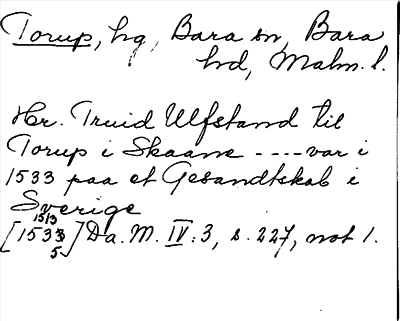 Torup, hg, Bara sn, Bara
hd, Malm. l.
Hr. Truid Ulfstand til
Torup i Skaane ---- var i
1533 paa et Gesandtskab i
Sverige
15/3
[1533] Da. M. IV:3, s. 227, not 1.
5